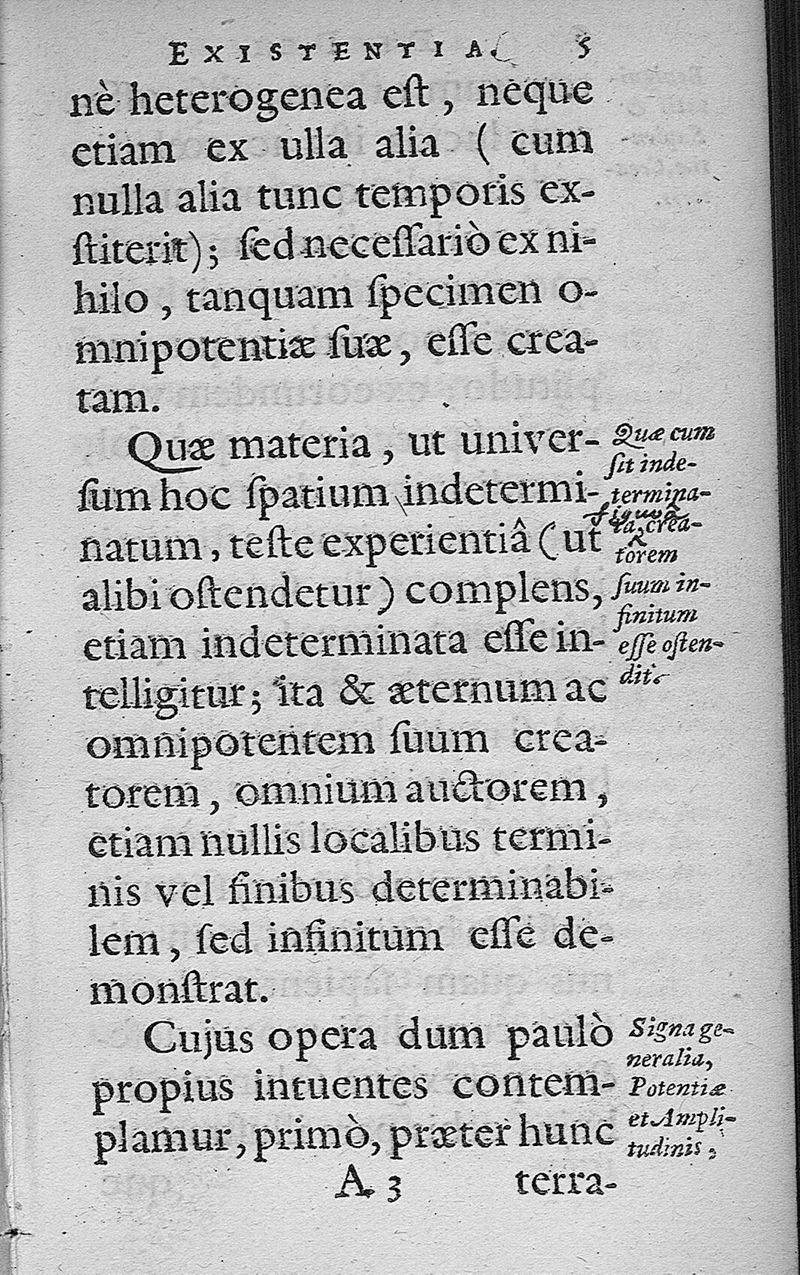 EXISTENTIA. 5
nè heterogenea eſt, neque
etiam ex ulla alia (cum
nulla alia tunc temporis ex-
ſtiterit); ſed neceſſariò ex ni-
hilo, tanquam ſpecimen o-
mnipotentiæ ſuæ, eſſe crea-
tam.
Quæ materia, ut univer-
ſum hoc ſpatium indetermi-
natum, teſte experientiâ (ut
alibi oſtendetur) complens,
etiam indeterminata eſſe in-
telligitur; ita & æternum ac
omnipotentem ſuum crea-
torem, omnium auctorem,
etiam nullis localibus termi-
nis vel finibus determinabi-
lem, ſed infinitum eſſe de-
monſtrat.
Quæ cum
ſit inde-
termina-
ta, crea-
torem
ſuum in-
finitum
eſſe oſten-
dit.
Cujus opera dum paulò
propius intuentes contem-
plamur, primò, præter hunc
Signa ge-
neralia,
Potentiæ
et Ampli-
tudinis;
A 3 terra-